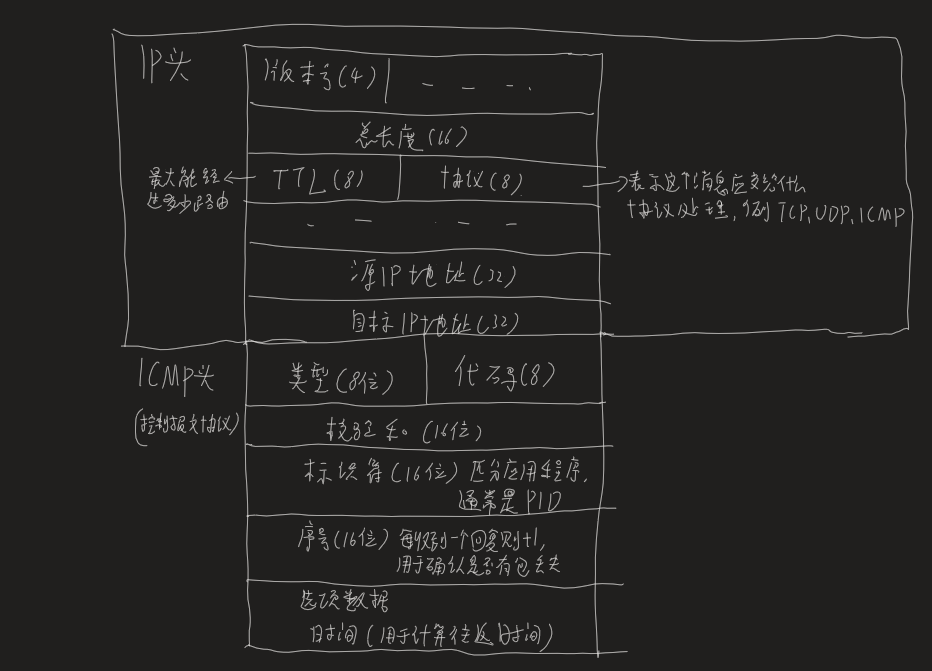 IP头
版本号(4)
总长度(16)
最大能经
过多少路由
TTL(8)
协议(8)
表示这个消息应交给什么
协议处理,例TCP、UDP、ICMP
源IP地址(32)
目标IP地址(32)
ICMP头
(控制报文协议)
类型(8位)
代码(8)
校验和(16位)
标识符(16位) 区分应用程序,
通常是PID
序号(16位) 每收到一个回复则+1,
用于确认是否有包丢失
选项数据
时间(用于计算往返时间)